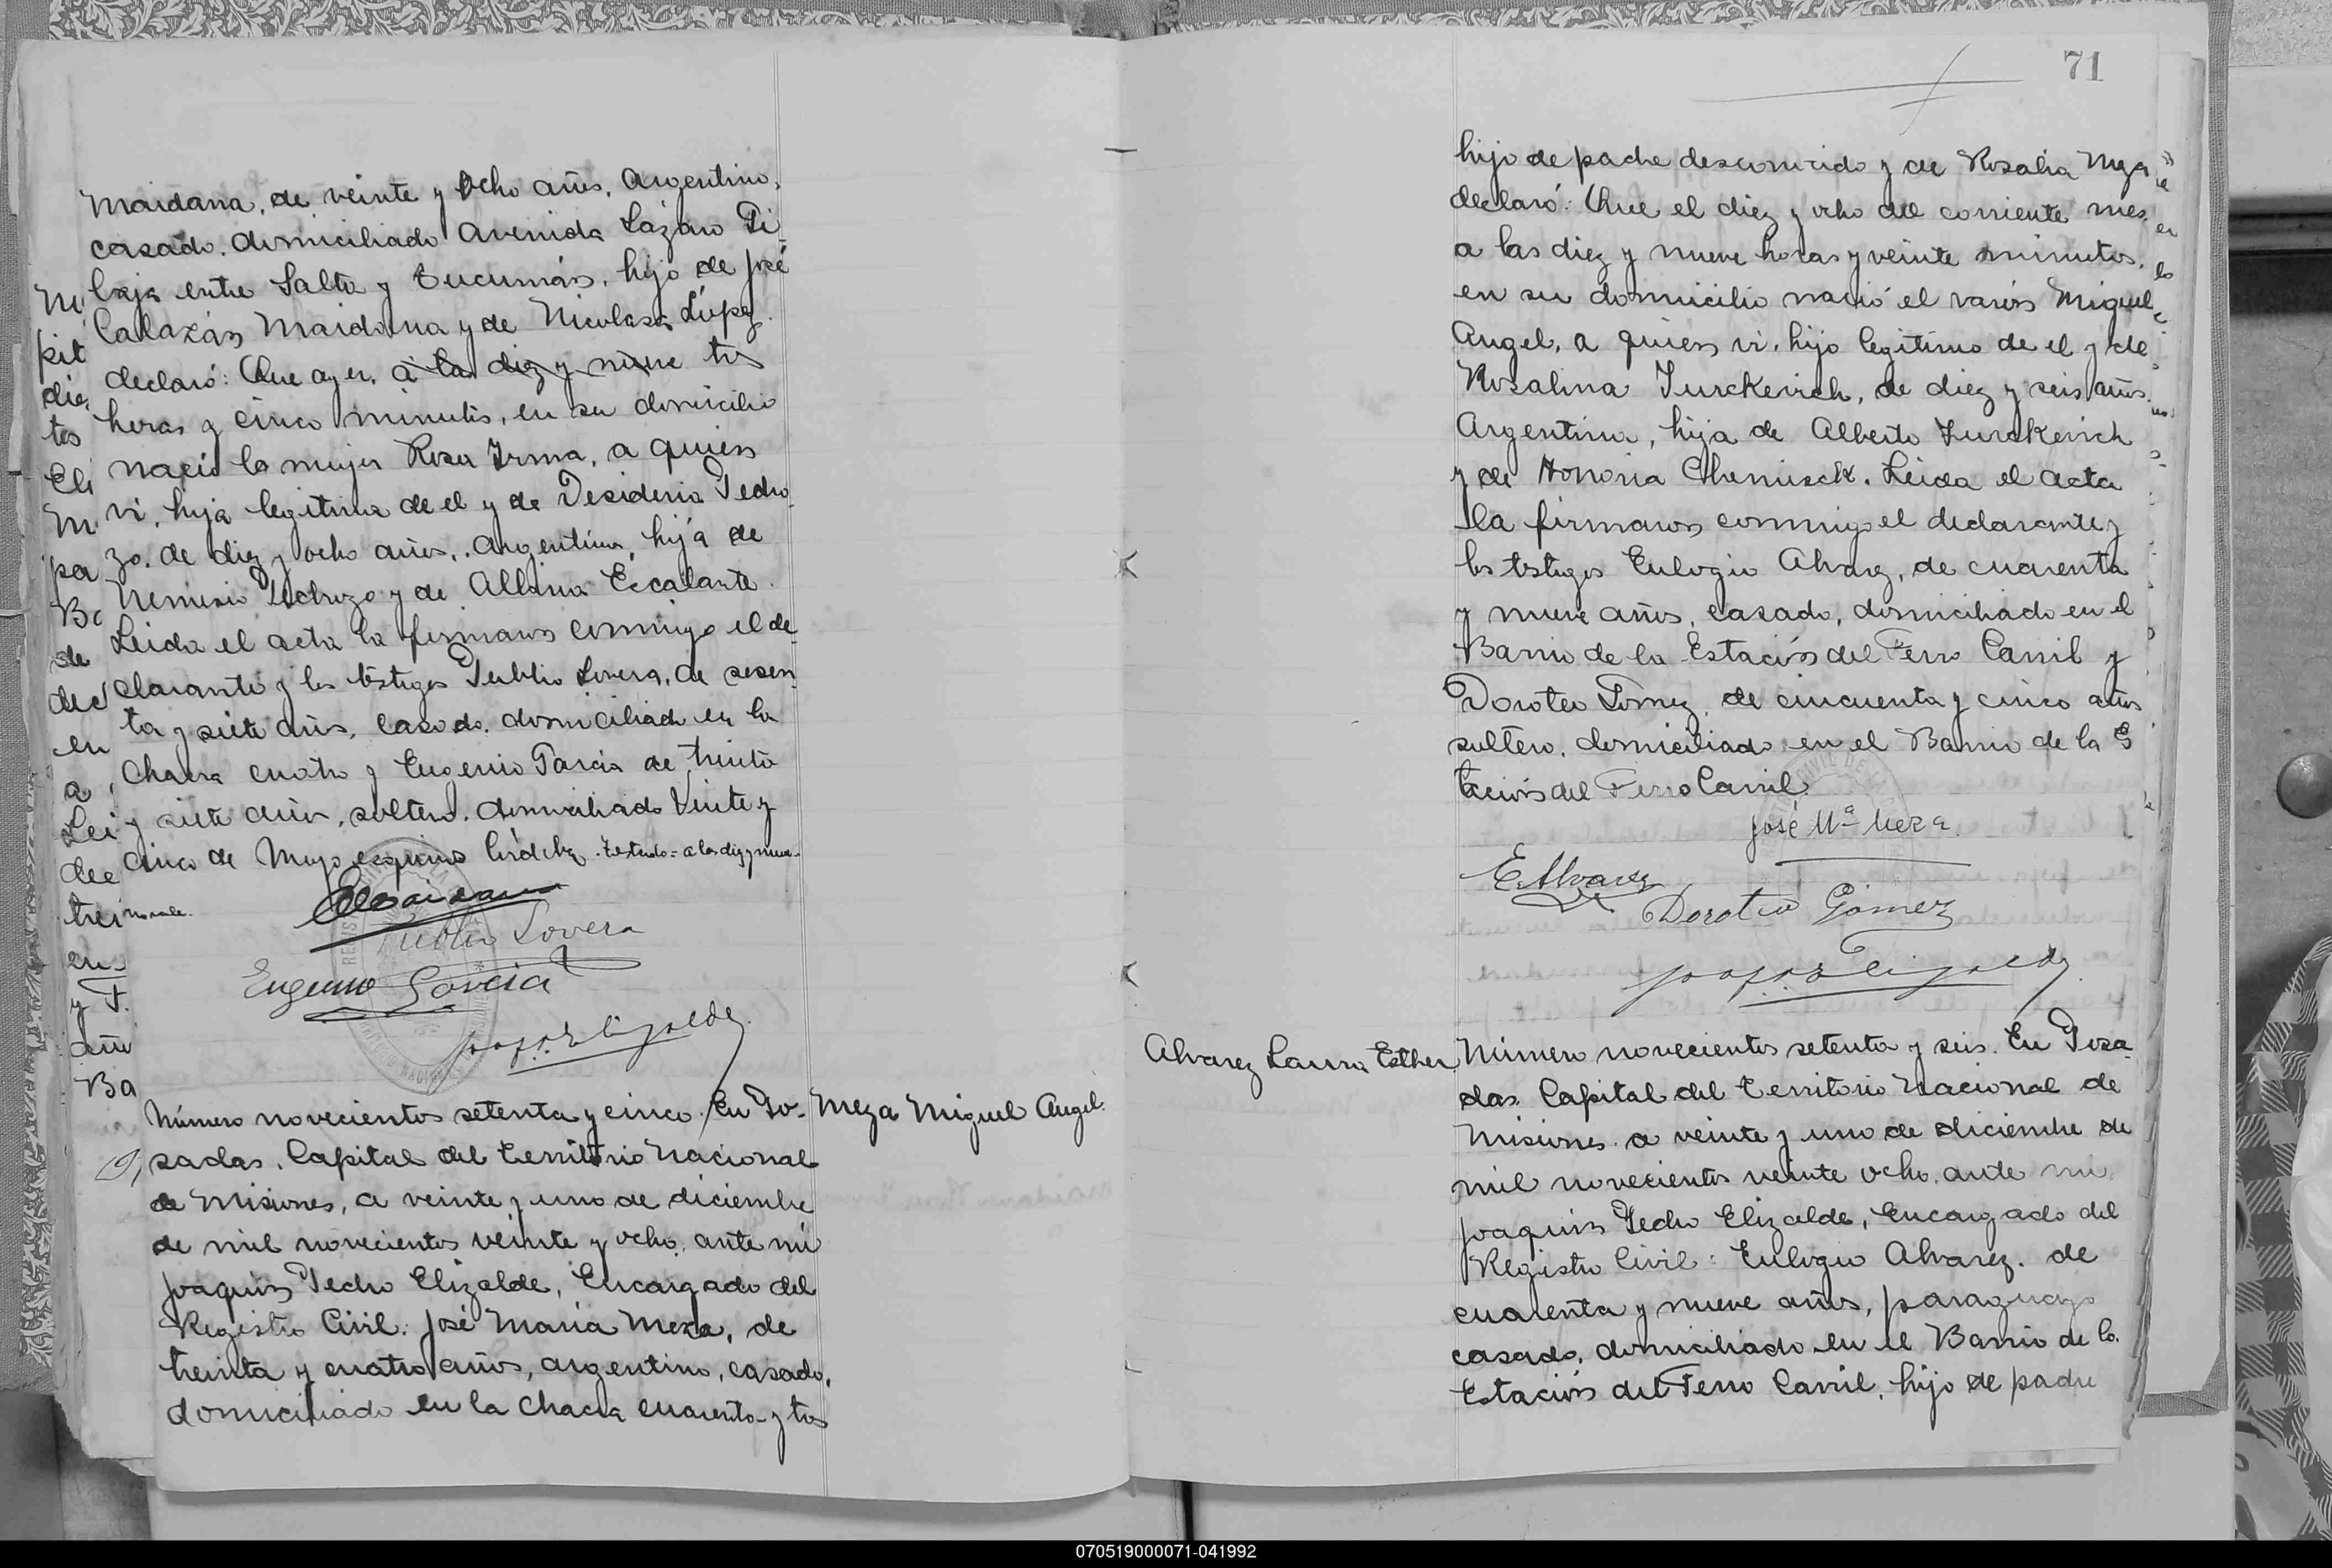 Maidana, de veinte y ocho años, Argentino,
casado, domiciliado Avenida Lázaro Gi
baja entre Salta y Tucumán, hijo de José
Calazán Maidana y de Nicolasa López.
declaró: Que ayer, a las diez y nueve tres
horas y cinco minutos, en su domicilio
nació la mujer Rosa Irma, a quien
vi, hija legitima de el y de Desideria Pedro
zo, de diez y ocho años, Argentina, hija de
Nemesio Pedrozo y de Albina Escalante.
Leida el acta la firmaron conmigo el de-
clarante y los testigos Publio Lovera, de sesen
ta y siete años, casado, domiciliado en la
Chacra cuatro y Eugenio Garcia de treinta
y siete años, soltero, domiciliado Veinte y
cinco de Mayo esquina Córdoba. Testado = a las diez y nueve =
no vale.
Publio Lovera
Eugenio Garcia
Meza Miguel Angel.
Número novecientos setenta y cinco. En Po-
sadas, Capital del Territorio Nacional
de Misiones, a veinte y uno de diciembre
de mil novecientos veinte y ocho, ante mi
Joaquin Pedro Elizalde, Encargado del
Registro Civil: José Maria Meza, de
treinta y cuatro años, argentino, casado,
domiciliado en la Chacra cuarenta y tres
71
hijo de padre desconocido y de Rosalia Meza
declaró: Que el diez y ocho del corriente mes,
a las diez y nueve horas y veinte minutos,
en su domicilio nació el varón Miguel
Angel, a quien vi, hijo legitimo de el y de
Rosalina Turckevich, de diez y seis años,
Argentina, hija de Alberto Turckevich
y de Honoria Chemisck. Leida el acta
la firmaron conmigo el declarante y
los testigos Eulogio Alvarez, de cuarenta
y nueve años, casado, domiciliado en el
Barrio de la Estación del Ferro Carril y
Doroteo Gómez, de cincuenta y cinco años
soltero, domiciliado en el Barrio de la Es
tación del Ferro Carril.
José Mª Meza
E. Alvarez
Doroteo Gómez
Alvarez Laura Esther
Número novecientos setenta y seis. En Posa
das, Capital del Territorio Nacional de
Misiones, a veinte y uno de diciembre de
mil novecientos veinte ocho, ante mi
Joaquin Pedro Elizalde, Encargado del
Registro Civil: Eulogio Alvarez, de
cuarenta y nueve años, paraguayo
casado, domiciliado en el Barrio de la
Estación del Ferro Carril, hijo de padre
070519000071-041992